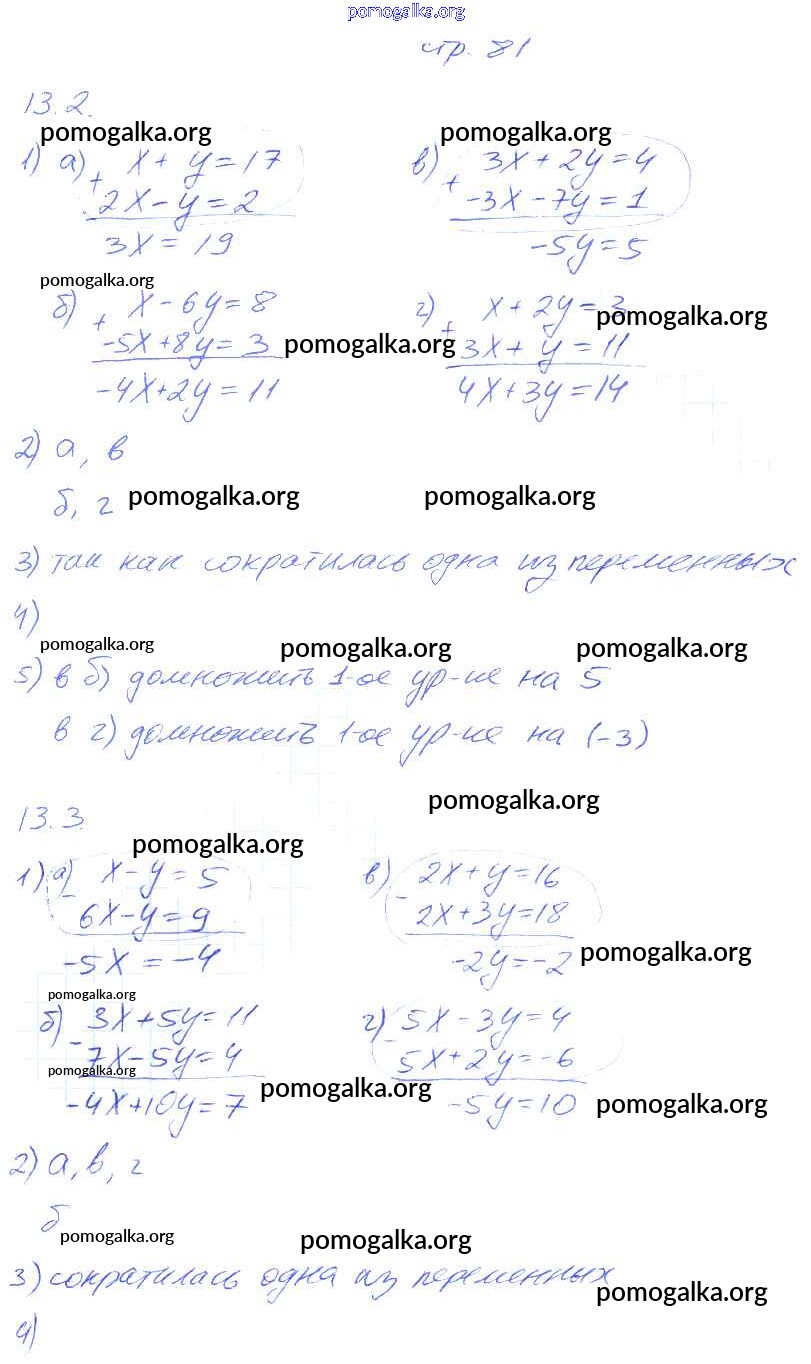 pomogalka.org
стр. 81
13.2.
pomogalka.org pomogalka.org
1) а) + x + y = 17 в) + 3x + 2y = 4
2x - y = 2 -3x - 7y = 1
3x = 19 -5y = 5
pomogalka.org
б) + x - 6y = 8 г) + x + 2y = 3 pomogalka.org
-5x + 8y = 3 pomogalka.org 3x + y = 11
-4x + 2y = 11 4x + 3y = 14
2) а, в
б, г pomogalka.org pomogalka.org
3) так как сократилась одна из переменных
4)
pomogalka.org pomogalka.org pomogalka.org
5) в б) домножить 1-ое ур-ие на 5
в г) домножить 1-ое ур-ие на (-3)
pomogalka.org
13.3.
pomogalka.org
1) а) - x - y = 5 в) - 2x + y = 16
6x - y = 9 2x + 3y = 18
-5x = -4 -2y = -2 pomogalka.org
pomogalka.org
б) - 3x + 5y = 11 г) - 5x - 3y = 4
7x - 5y = 4 5x + 2y = -6
pomogalka.org
-4x + 10y = 7 pomogalka.org -5y = 10 pomogalka.org
2) а, в, г
б
pomogalka.org pomogalka.org
3) сократилась одна из переменных
pomogalka.org
4)